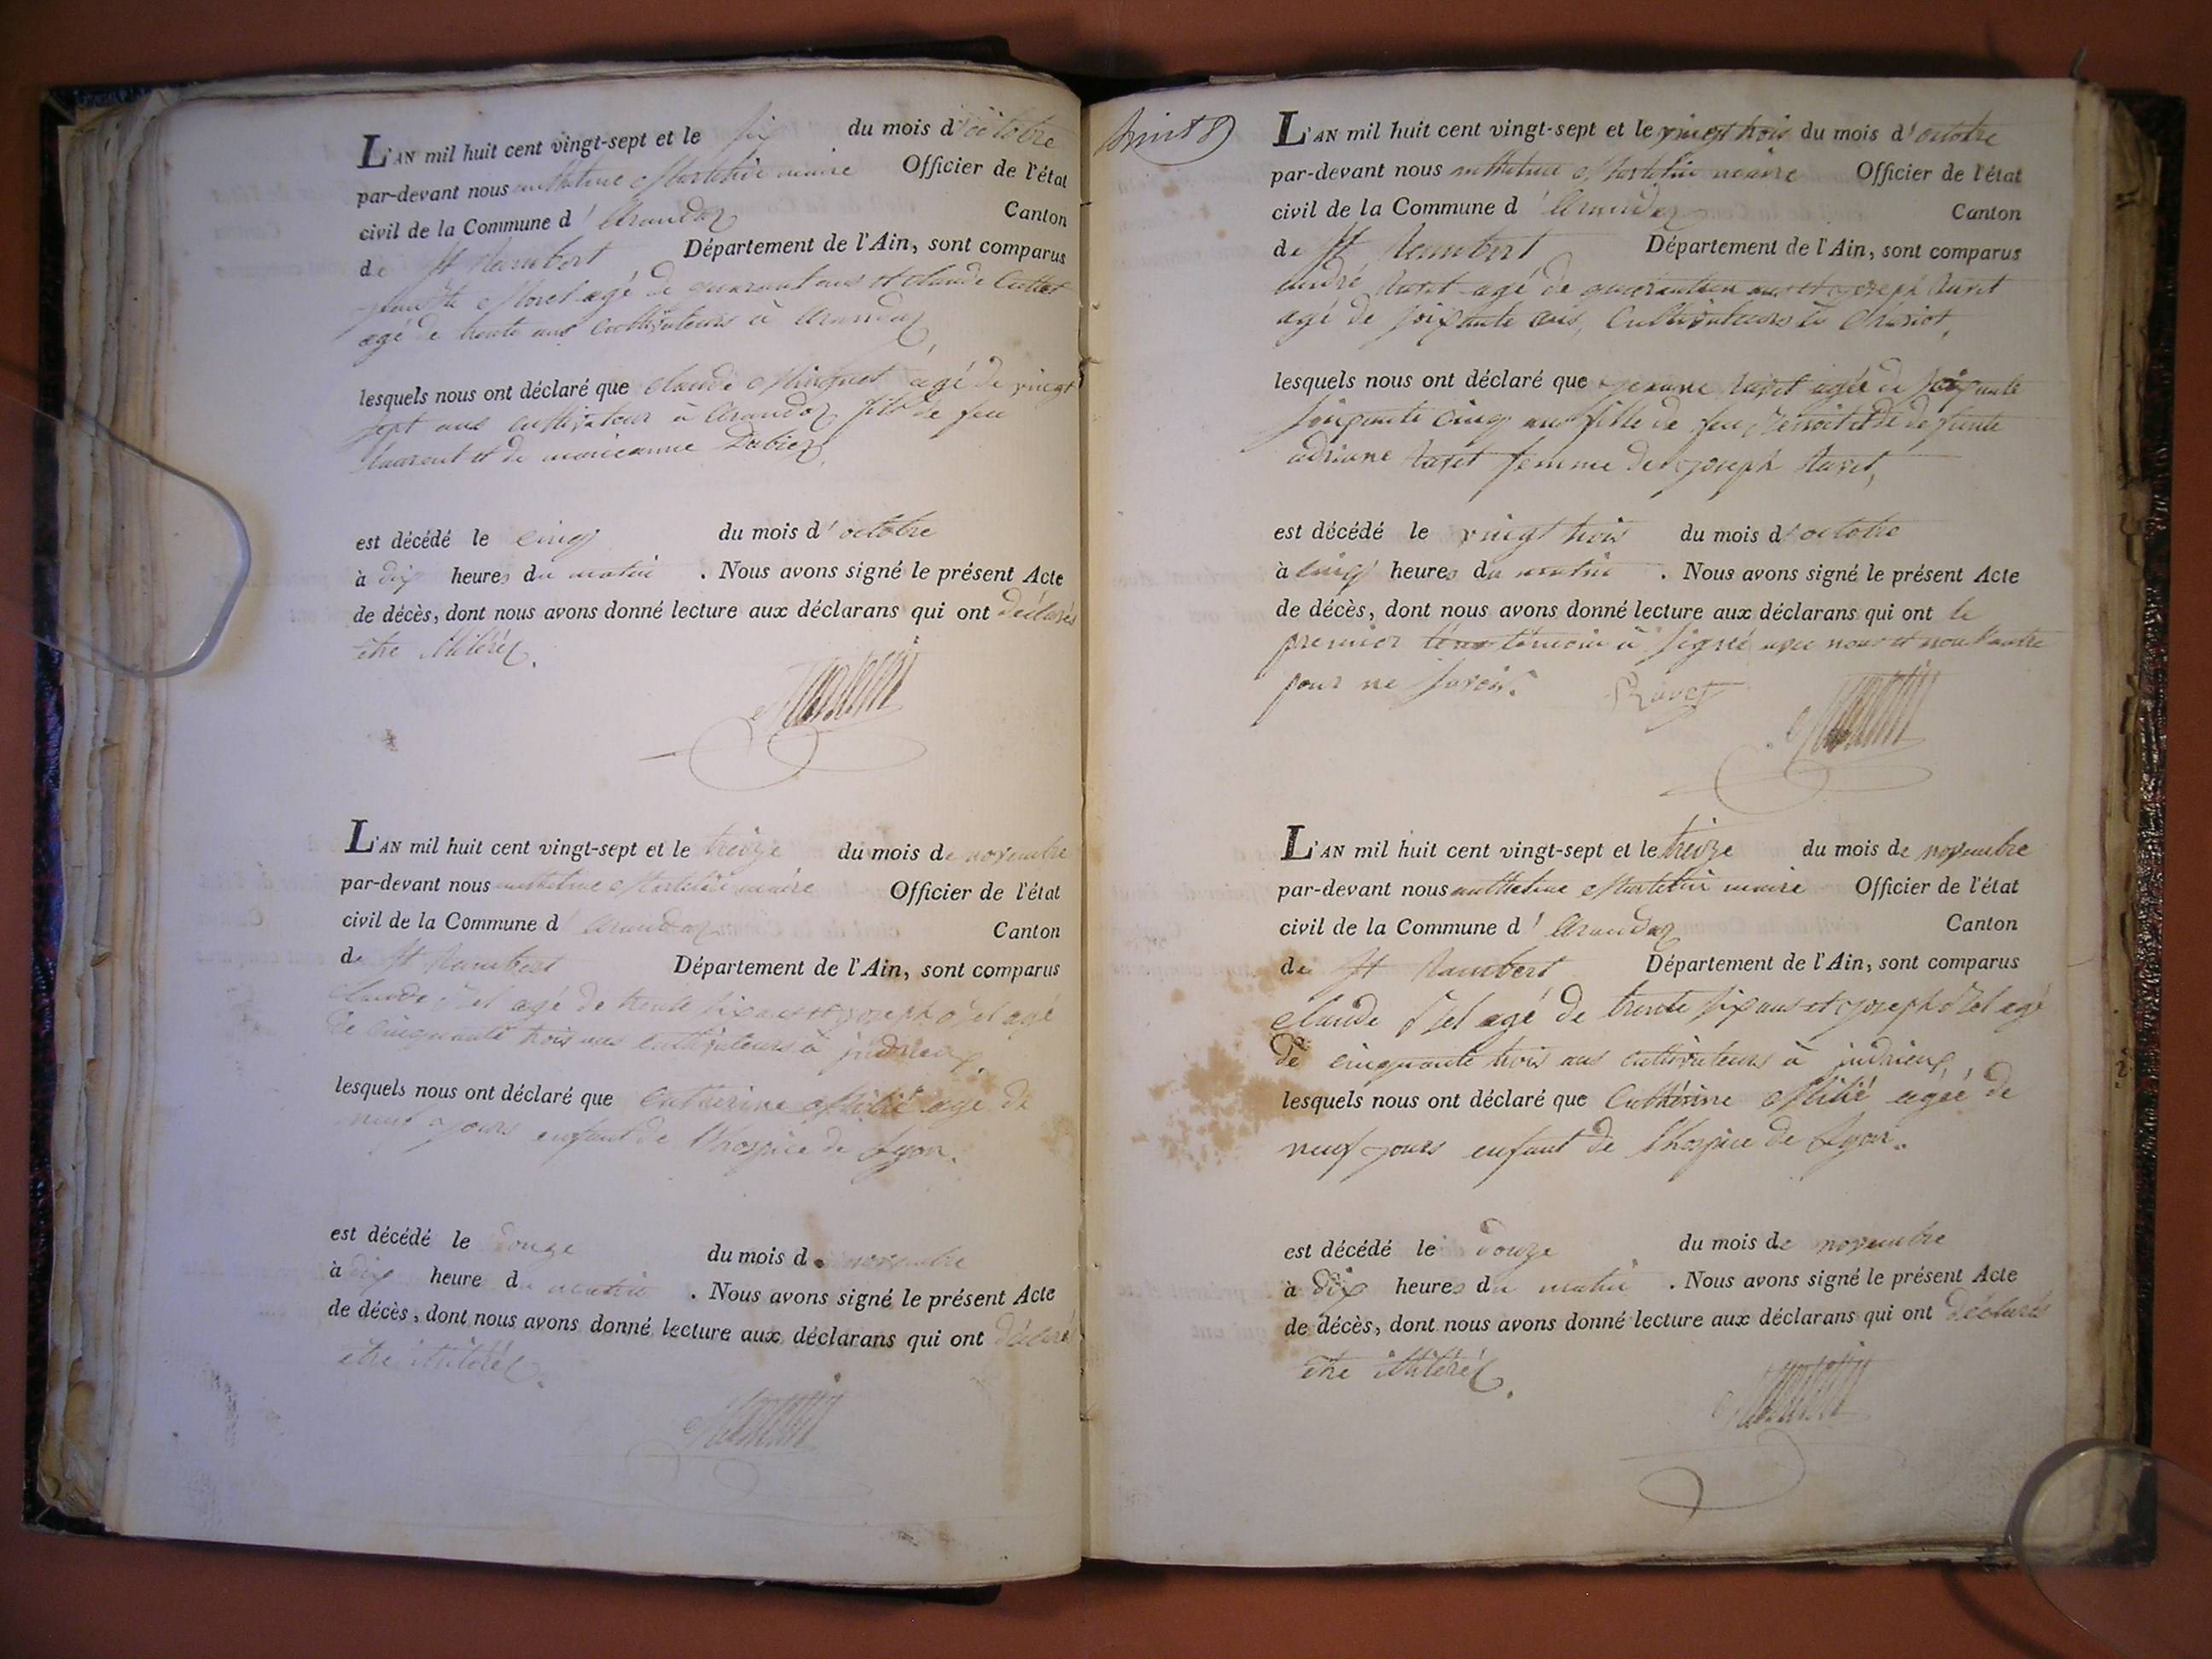 L'AN mil huit cent vingt-sept et le six du mois d'octobre
par-devant nous anthelme Martelin maire Officier de l'état
civil de la Commune d'arandaz Canton
de St Rambert Département de l'Ain, sont comparus
Morel agé de quarant ans et claude Cuttet
agé de trente ans Cultivateurs à arandaz,
lesquels nous ont déclaré que claude agé de vingt
sept ans cultivateur à arandaz fils de feu
laurent et de marieanne
est décédé le cinq du mois d'octobre
à dix heures du matin . Nous avons signé le présent Acte
de décès, dont nous avons donné lecture aux déclarans qui ont déclarés
être illitérés.
Martelin
L'AN mil huit cent vingt-sept et le treize du mois de novembre
par-devant nous anthelme Martelin maire Officier de l'état
civil de la Commune d'arandaz Canton
de St Rambert Département de l'Ain, sont comparus
claude agé de trente six ans et joseph agé
de cinquante trois ans cultivateurs à indrieux,
lesquels nous ont déclaré que Catherine agé de
neuf jours enfant de l'hospice de Lyon.
est décédé le douze du mois de novembre
à dix heure du matin . Nous avons signé le présent Acte
de décès, dont nous avons donné lecture aux déclarans qui ont déclaré
être illitérés.
Martelin
L'AN mil huit cent vingt-sept et le vingt trois du mois d'octobre
par-devant nous anthelme Martelin maire Officier de l'état
civil de la Commune d'arandaz Canton
de St Rambert Département de l'Ain, sont comparus
andré Ravet agé de ans et joseph Ravet
agé de soixante ans, Cultivateurs à
lesquels nous ont déclaré que Ravet agée de soixante
soixante cinq ans fille de feu et de defunte
adriane Ravet femme de joseph Ravet,
est décédé le vingt trois du mois d'octobre
à cinq heures du matin . Nous avons signé le présent Acte
de décès, dont nous avons donné lecture aux déclarans qui ont le
premier témoin à signé avec nous et non l'autre
pour ne savoir. Ravet
Martelin
L'AN mil huit cent vingt-sept et le treize du mois de novembre
par-devant nous anthelme Martelin maire Officier de l'état
civil de la Commune d'arandaz Canton
de St Rambert Département de l'Ain, sont comparus
claude agé de trente six ans et joseph agé
de cinquante trois ans cultivateurs à indrieux,
lesquels nous ont déclaré que Cathérine agée de
neuf jours enfant de l'hospice de Lyon.
est décédé le douze du mois de novembre
à dix heures du matin . Nous avons signé le présent Acte
de décès, dont nous avons donné lecture aux déclarans qui ont déclarés
être illitérés.
Martelin